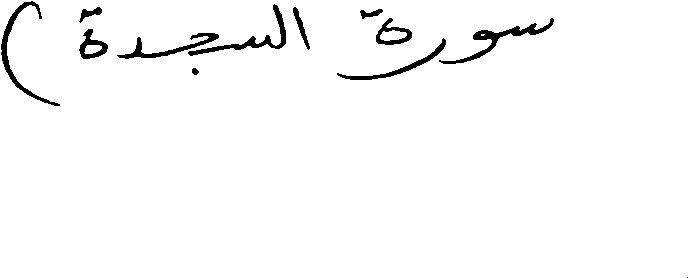 سورة السجدة )